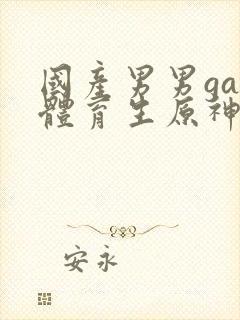 國產男男ga
體育生原神
安永